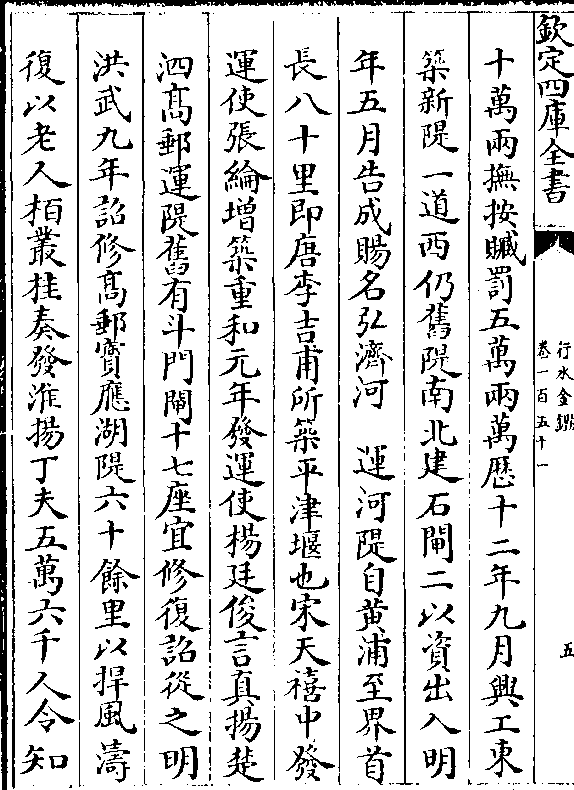 欽定四庫全書
行水金鑑
卷一百五十一
五
十萬兩撫按贓罰五萬兩萬歷十二年九月興工東
築新隄一道西仍舊隄南北建石閘二以資出入明
年五月告成賜名弘濟河　運河隄自黄浦至界首
長八十里即唐李吉甫所築平津堰也宋天禧中發
運使張綸增築重和元年發運使楊廷俊言真揚楚
泗髙郵運隄舊有斗門閘十七座宜修復詔從之明
洪武九年詔修髙郵寳應湖隄六十餘里以捍風濤
復以老人柏叢桂奏發淮揚丁夫五萬六千人令知